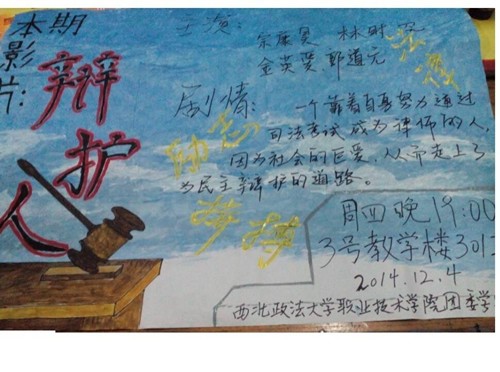 本期
影片:
辩护人
主演:
宋康昊 林时完
金英爱 郭道元
剧情:
一个靠着自己努力通过
司法考试成为律师的人,
因为社会的巨变,从而走上了
为民主辩护的道路。
周四晚19:00
3号教学楼301
2014.12.4
西北政法大学职业技术学院团委学